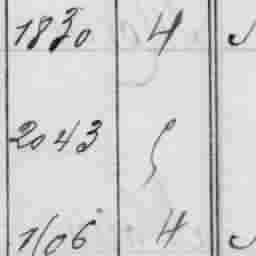 1830 4
2043 5
1606 4